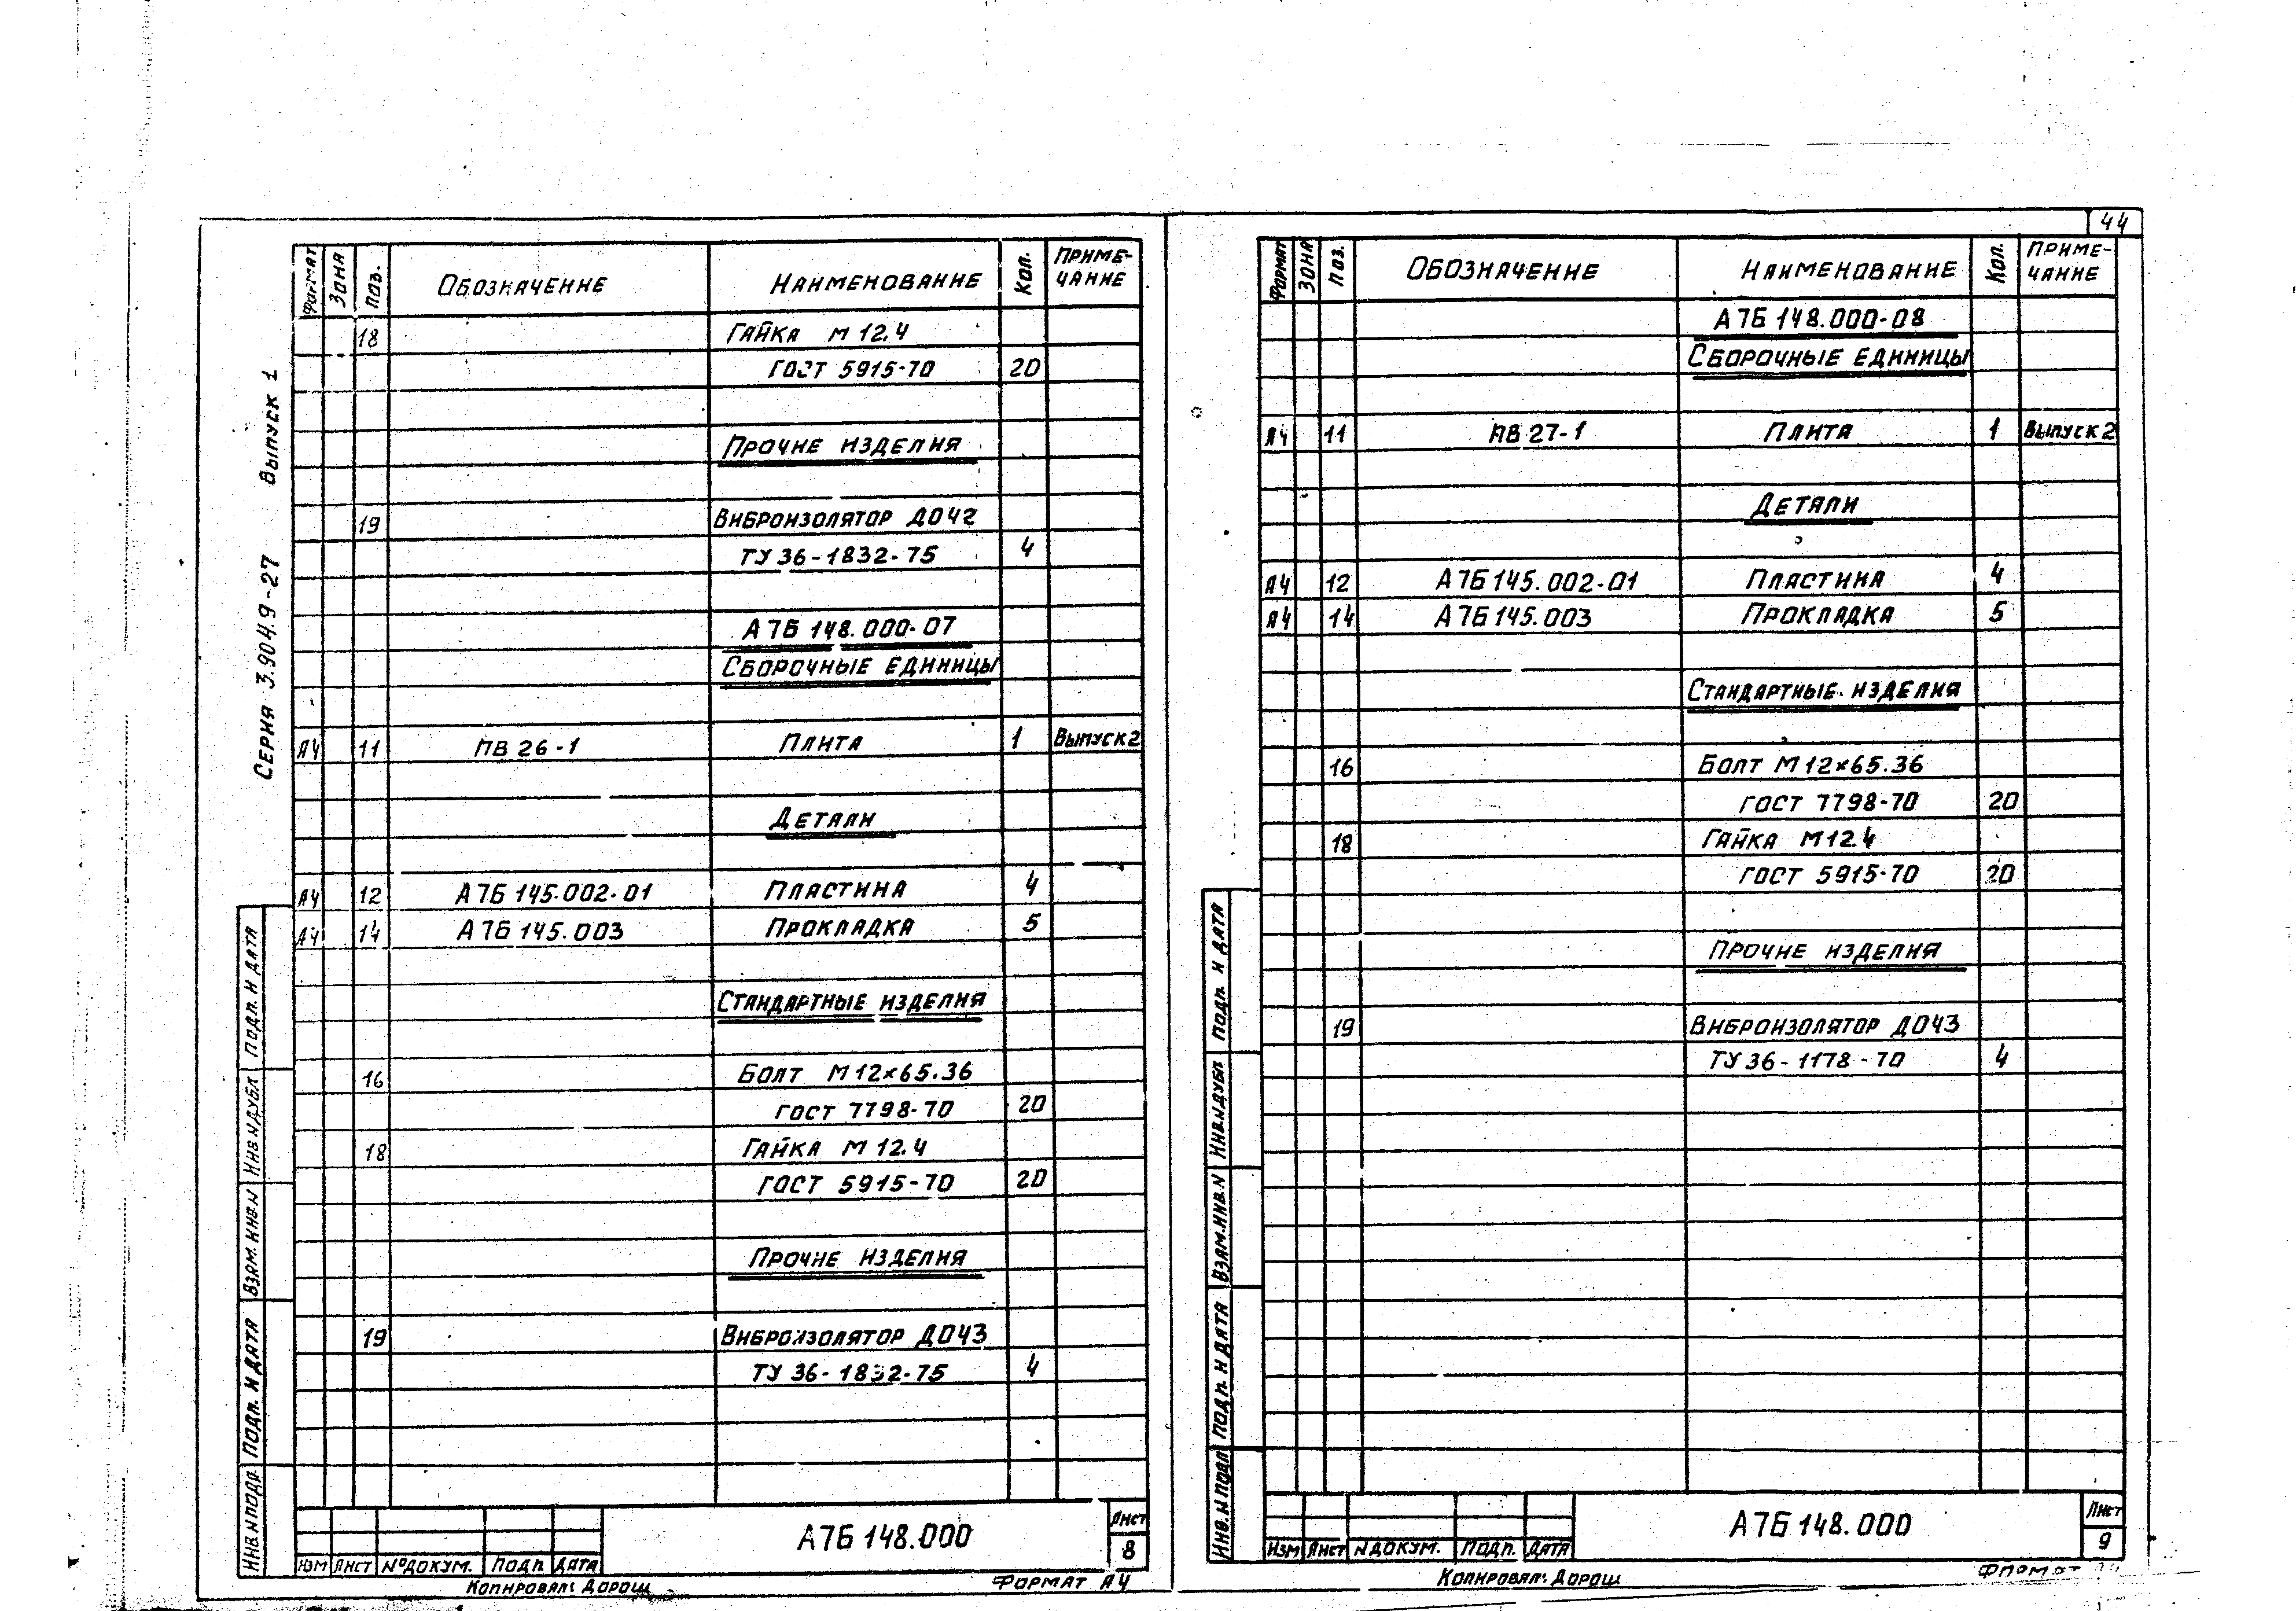 44
Серия 3.904.9-27 Выпуск 1
Формат Зона Поз. Обозначение Наименование Кол. Приме-
чание
18 Гайка М 12.4
ГОСТ 5915-70 20
Прочие изделия
19 Виброизолятор ДО42
ТУ 36-1832-75 4
А7Б 148.000-07
Сборочные единицы
А4 11 ПВ 26-1 Плита 1 Выпуск 2
Детали
А4 12 А7Б 145.002-01 Пластина 4
А4 14 А7Б 145.003 Прокладка 5
Стандартные изделия
16 Болт М 12×65.36
ГОСТ 7798-70 20
18 Гайка М 12.4
ГОСТ 5915-70 20
Прочие изделия
19 Виброизолятор ДО43
ТУ 36-1832-75 4
Инв.N подл. Подп. и дата Взам. инв.N Инв N дубл Подп. и дата
Изм Лист № докум. Подп. Дата
А7Б 148.000
Лист
8
Копировал: Дорош Формат А4
Формат Зона Поз. Обозначение Наименование Кол. Приме-
чание
А7Б 148.000-08
Сборочные единицы
А4 11 ПВ 27-1 Плита 1 Выпуск 2
Детали
А4 12 А7Б 145.002-01 Пластина 4
А4 14 А7Б 145.003 Прокладка 5
Стандартные изделия
16 Болт М 12×65.36
ГОСТ 7798-70 20
18 Гайка М 12.4
ГОСТ 5915-70 20
Прочие изделия
19 Виброизолятор ДО43
ТУ 36-1178-70 4
Инв. N подл Подп. и дата Взам. инв. N Инв. N дубл Подп. и дата
Изм Лист N докум. Подп. Дата
А7Б 148.000
Лист
9
Копировал: Дорош Формат